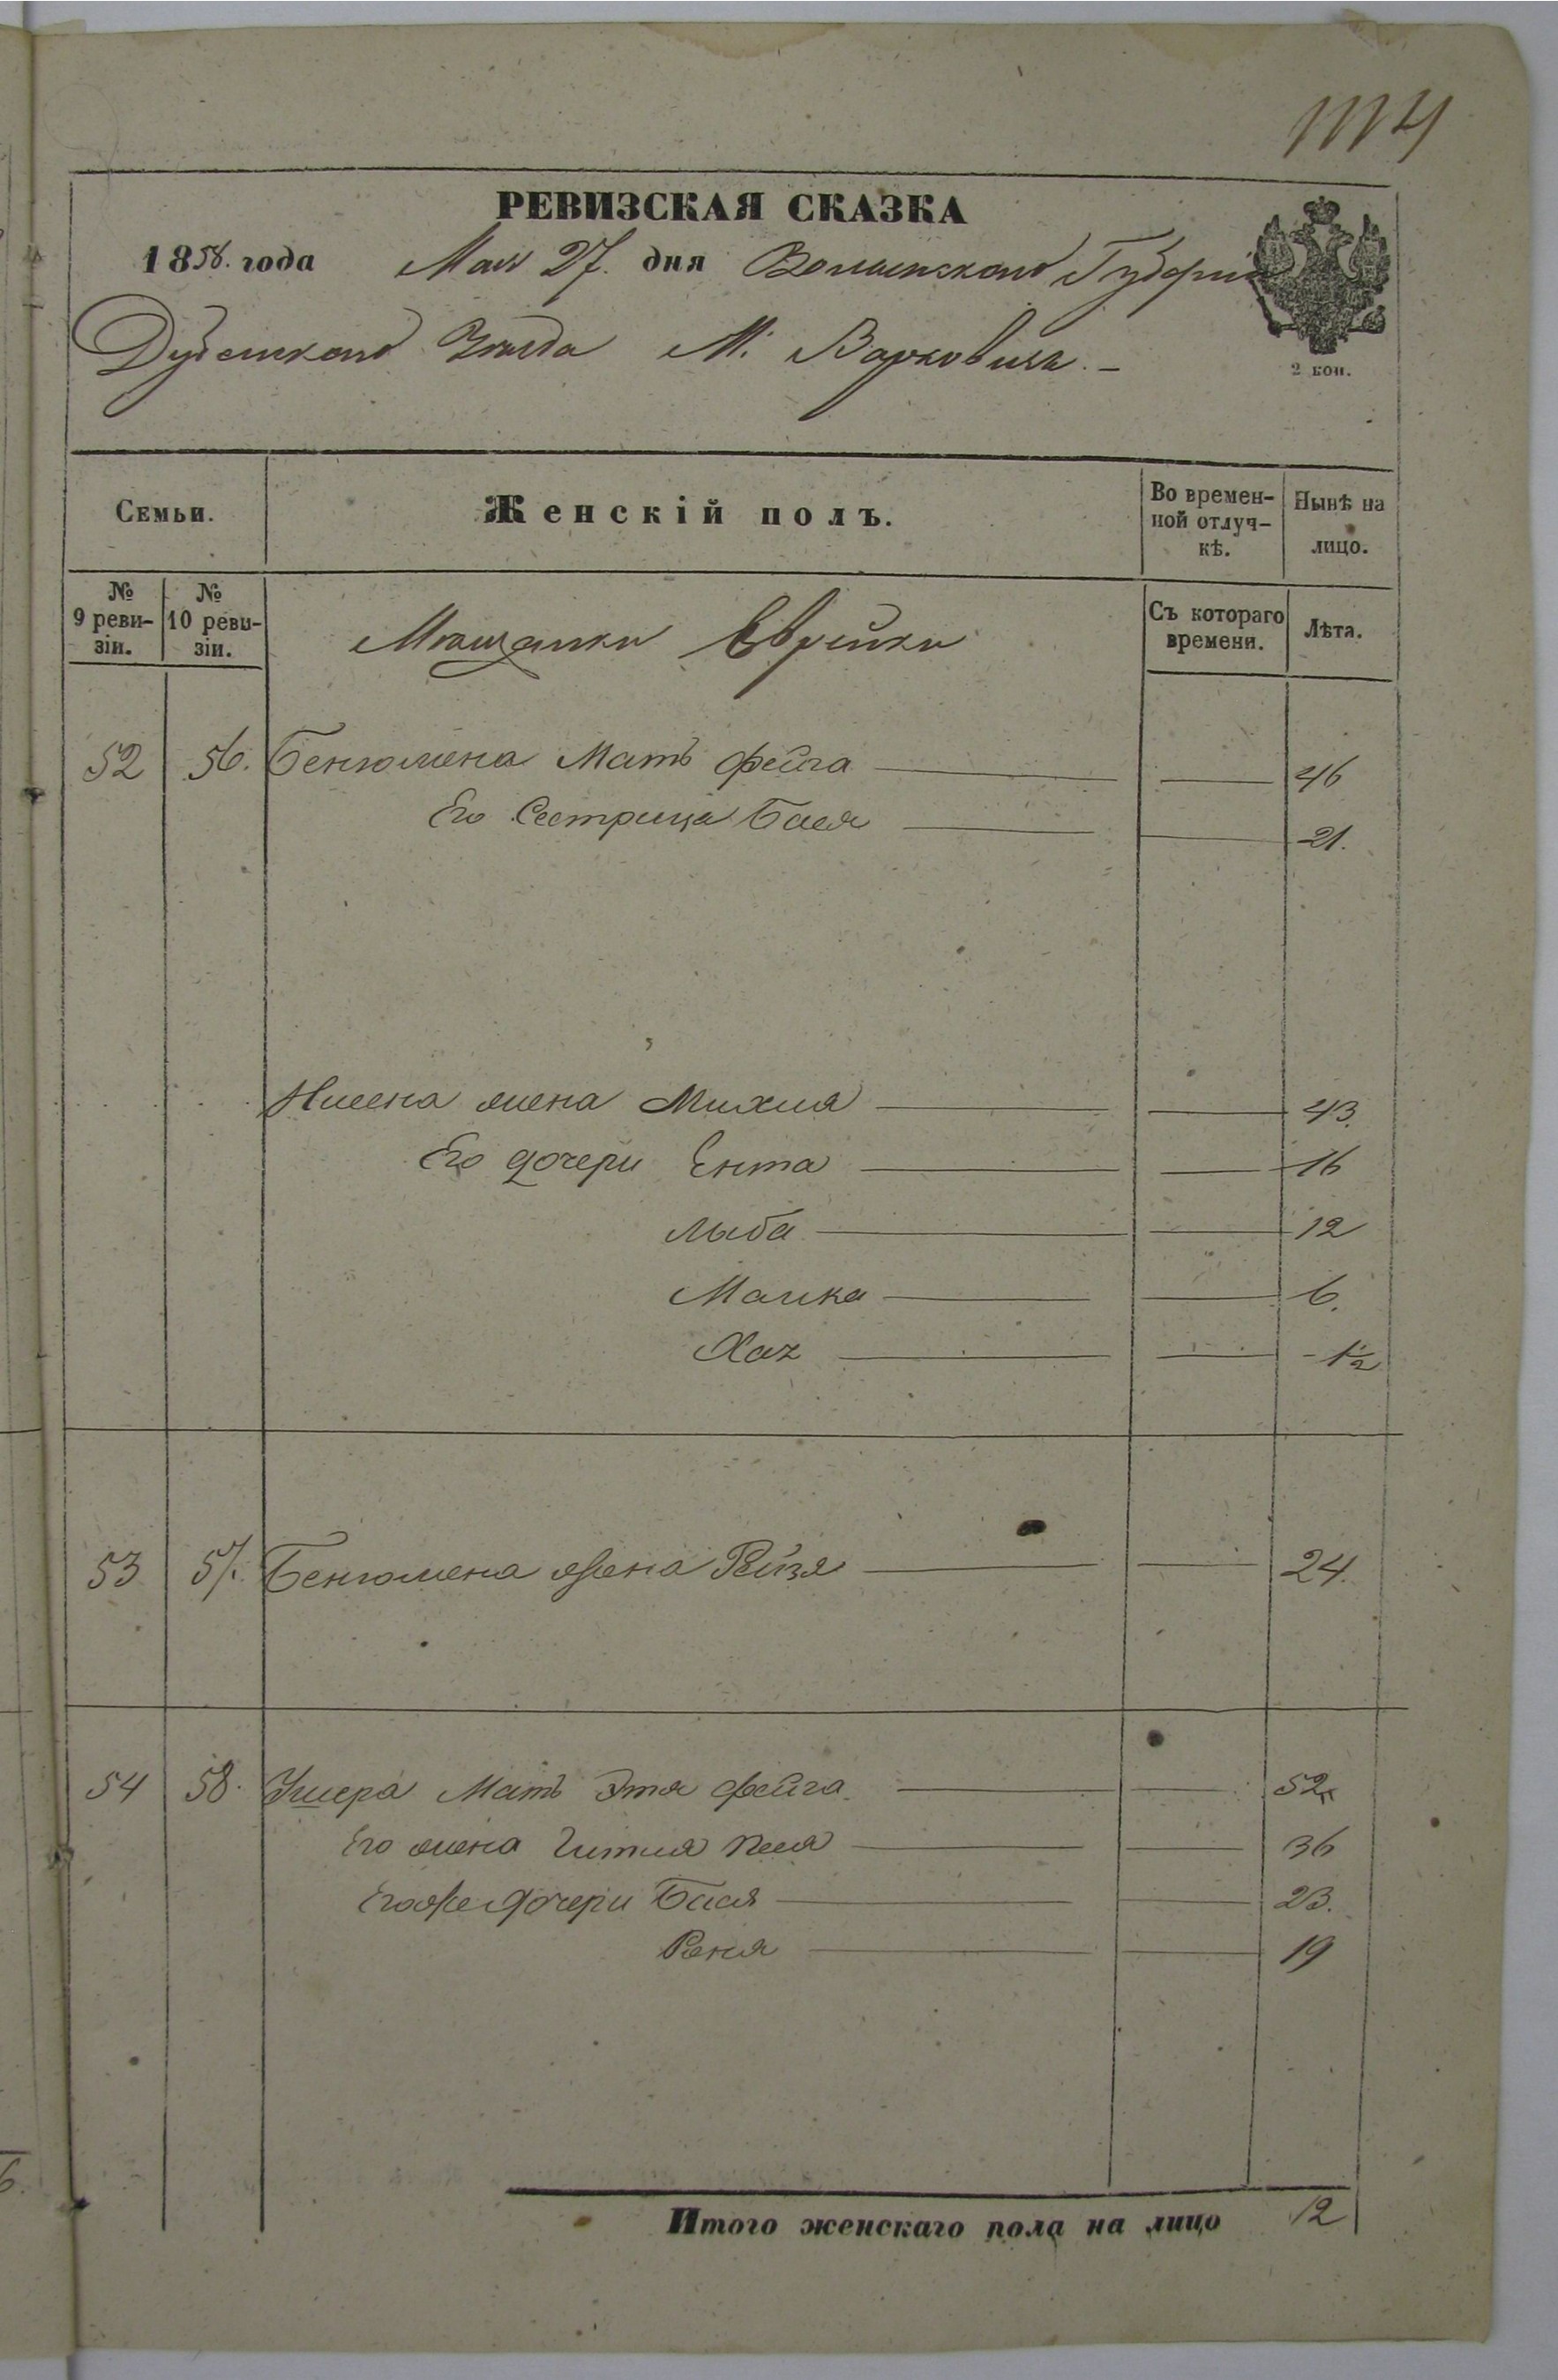 1114
РЕВИЗСКАЯ СКАЗКА
1858. года Мая 27. дня Волынской Губерніи
Дубенскаго Уѣзда М. Варковичь. –
2 коп.
Семьи. Женскій полъ. Во времен-
ной отлуч-
кѣ. Нынѣ на
лицо.
№
9 реви-
зіи. №
10 реви-
зіи. Мѣщанки Еврейки Съ котораго
времени. Лѣта.
52 56. Бенюмена Мать Фейга 46
Его Сестрица Бася 21.
жена 43.
Его дочери Ента 16
Лыба 12
Малка 6.
Хая 1½
53 57. Бенюмена жена Рейзя 24.
54 58. Ушера Мать Этя Фейга 52
Его жена Гитля 36
Егоже дочери Бася 23.
19
Итого женскаго пола на лицо 12